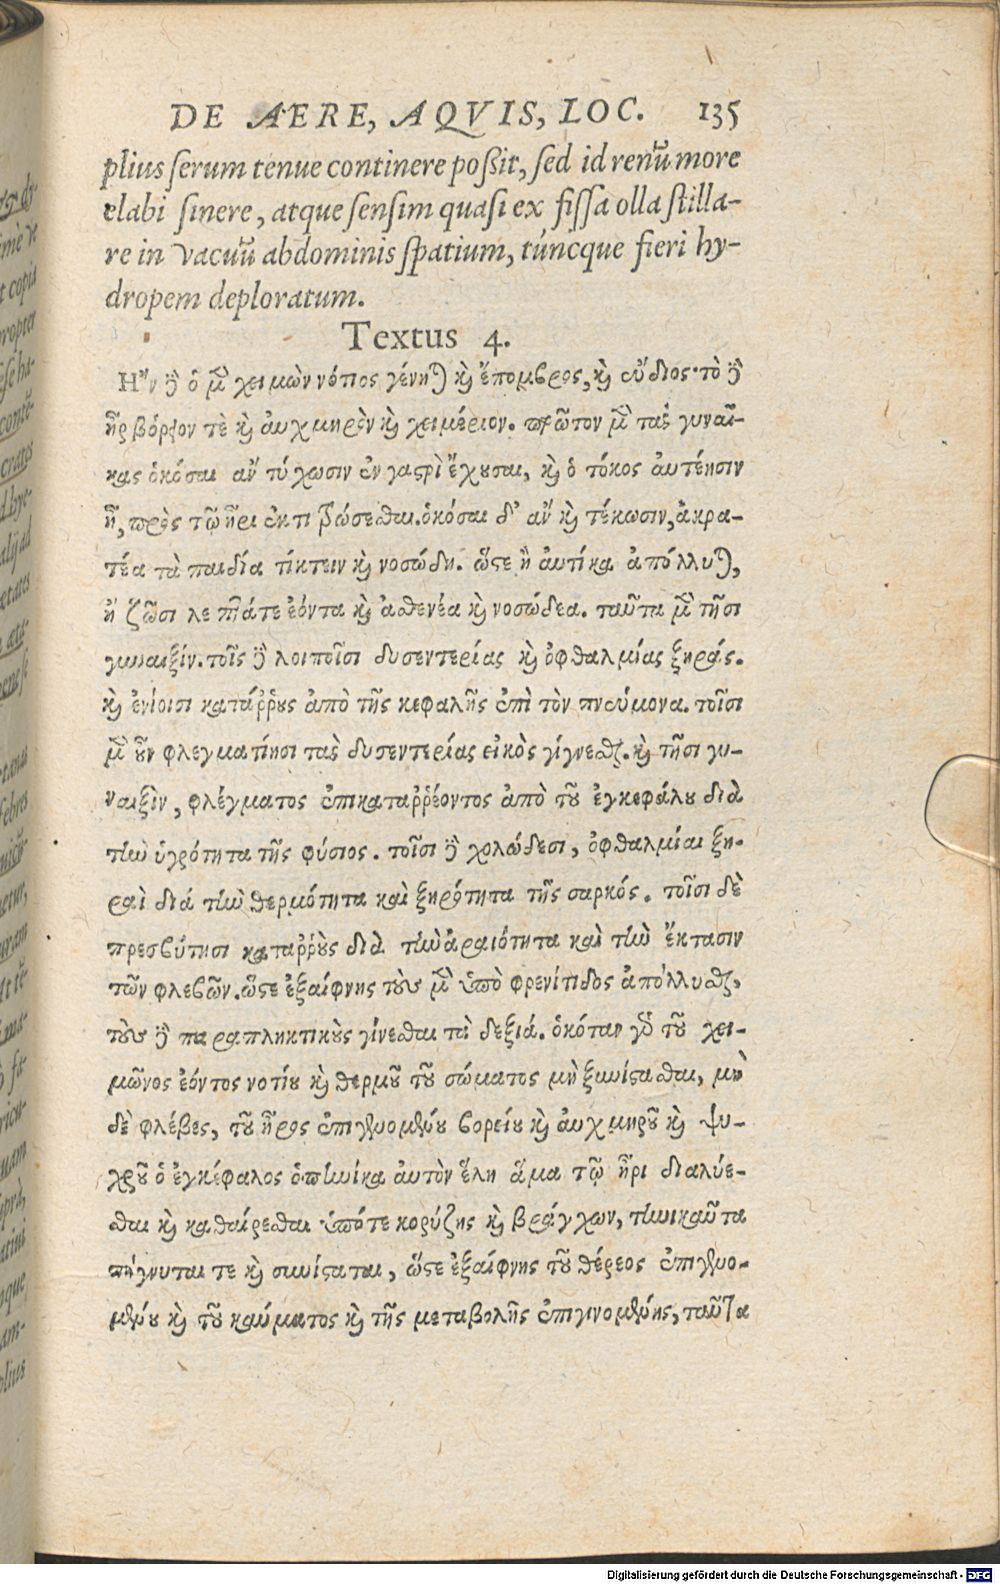 DE AERE, AQVIS, LOC. 135
plius serum tenue continere poßit, sed id renũ more
elabi sinere, atque sensim quasi ex fissa olla stilla-
re in vacuũ abdominis spatium, túncque fieri hy-
dropem deploratum.
Textus 4.
Ην δὲ ὁ μὲν χειμὼν νότιος γένηται καὶ ἔπομβρος, καὶ εὔδιος· τὸ δὲ
ἦρ βόρειον τὲ καὶ αὐχμηρὸν καὶ χειμέριον. πρῶτον μὲν τὰς γυναῖ-
κας ὁκόσαι ἂν τύχωσιν ἐν γαστρὶ ἔχουσαι, καὶ ὁ τόκος αὐτέῃσιν
ᾖ, πρὸς τῷ ἦρι ἐκτιτρώσεσθαι. ὁκόσαι δ' ἂν καὶ τέκωσιν, ἀκρα-
τέα τὰ παιδία τίκτειν καὶ νοσώδη. ὥστε ἢ αὐτίκα ἀπόλλυται,
ἢ ζῶσι λεπτά τε ἐόντα καὶ ἀσθενέα καὶ νοσώδεα. ταῦτα μὲν τῇσι
γυναιξίν. τοῖς δὲ λοιποῖσι δυσεντερίας καὶ ὀφθαλμίας ξηράς.
καὶ ἐνίοισι κατάῤῥους ἀπὸ τῆς κεφαλῆς ἐπὶ τὸν πνεύμονα. τοῖσι
μὲν οὖν φλεγματίῃσι τὰς δυσεντερίας εἰκὸς γίγνεσθαι. καὶ τῇσι γυ-
ναιξὶν, φλέγματος ἐπικαταῤῥέοντος ἀπὸ τοῦ ἐγκεφάλου διὰ
τὴν ὑγρότητα τῆς φύσιος. τοῖσι δὲ χολώδεσι, ὀφθαλμίαι ξη-
ραὶ διὰ τὴν θερμότητα καὶ ξηρότητα τῆς σαρκός. τοῖσι δὲ
πρεσβύτῃσι καταῤῥοὺς διὰ τὴν ἀραιότητα καὶ τὴν ἔκτασιν
τῶν φλεβῶν. ὥστε ἐξαίφνης τοὺς μὲν ὑπὸ φρενίτιδος ἀπόλλυσθαι,
τοὺς δὲ παραπληκτικοὺς γίνεσθαι τὰ δεξιά. ὁκόταν γὰρ τοῦ χει-
μῶνος ἐόντος νοτίου καὶ θερμοῦ τοῦ σώματος μὴ ξυνίστασθαι, μη
δὲ φλέβες, τοῦ ἦρος ἐπιγενομένου βορείου καὶ αὐχμηροῦ καὶ ψυ-
χροῦ ὁ ἐγκέφαλος ὁπηνίκα αὐτὸν ἕλη ἅμα τῷ ἦρι διαλύε-
σθαι καὶ καθαίρεσθαι ὑπό τε κορύζης καὶ βράγχων, τηνικαῦτα
πήγνυται τε καὶ συνίσταται, ὥστε ἐξαίφνης τοῦ θέρεος ἐπιγενο-
μένου καὶ τοῦ καύματος καὶ τῆς μεταβολῆς ἐπιγινομένης, ταῦτα
Digitalisierung gefördert durch die Deutsche Forschungsgemeinschaft - DFG